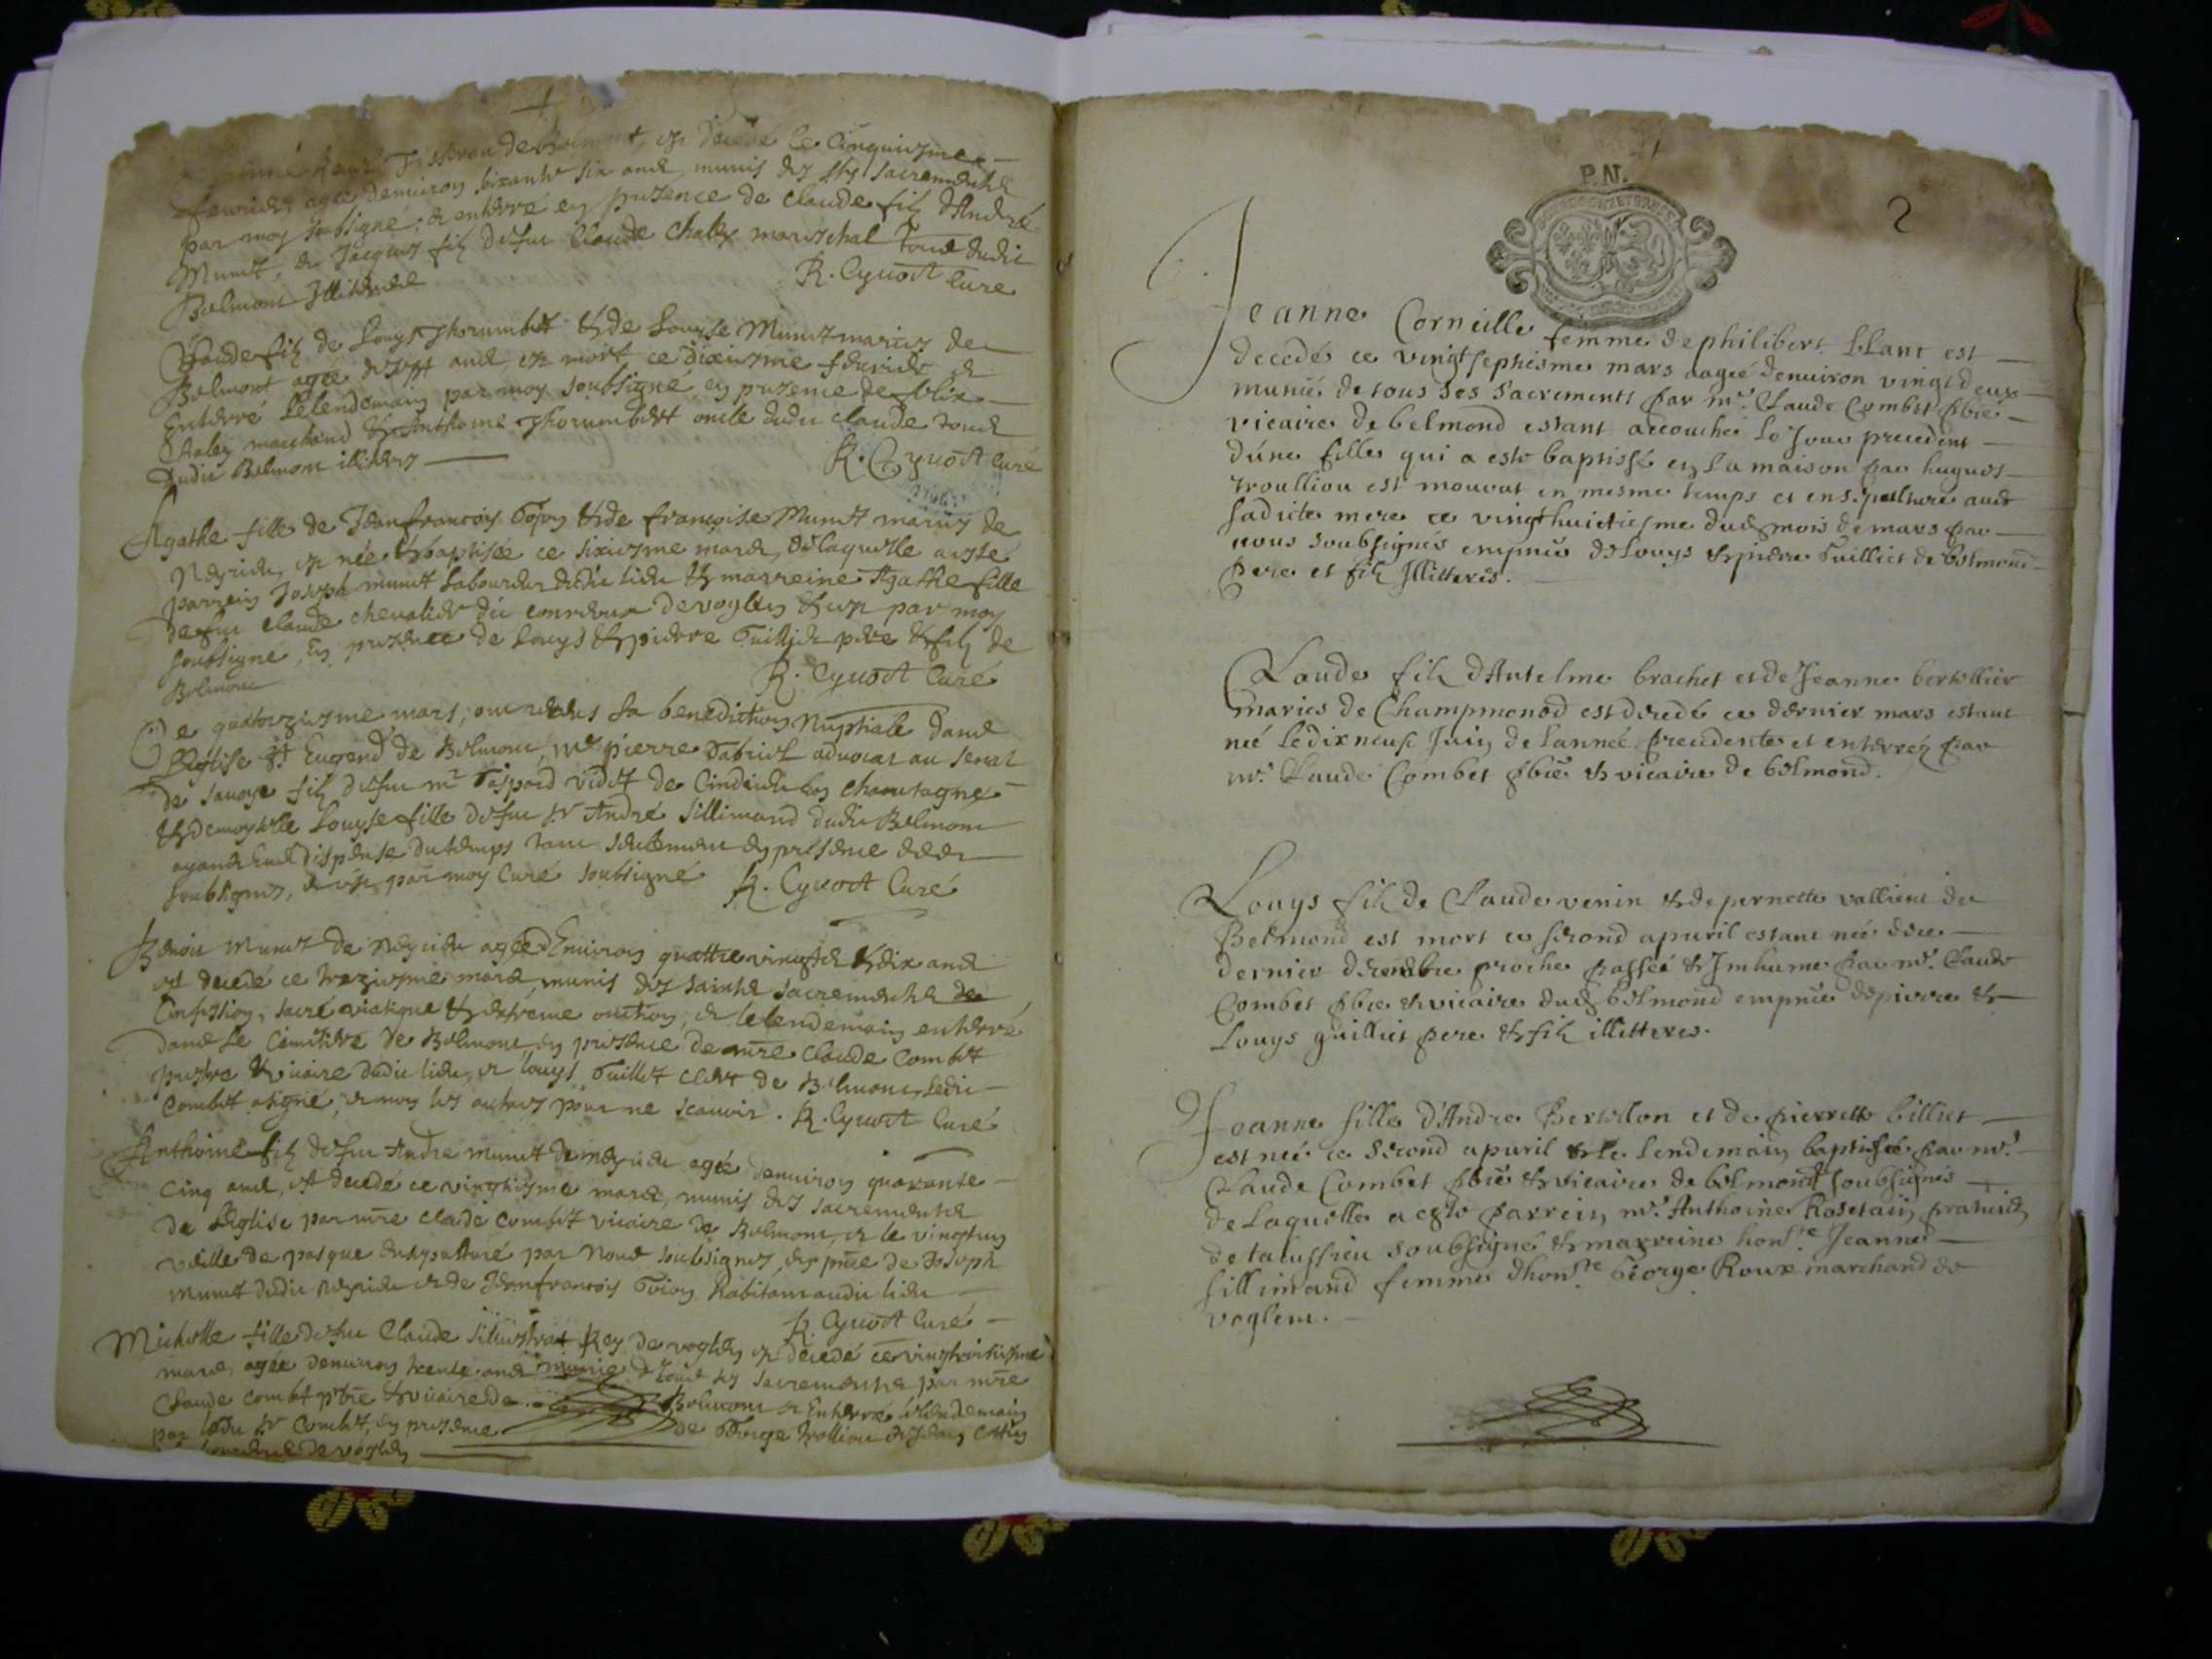 de Belmont, est decedé le cinquiesme
fevrier agée denuiron soixante six ans, munis des sts sacrements
par moy soubsigné, & enterré en presence de Claude filz d'André
Munet, & Jacques filz de feu Claude Chaley mareschal tous dudit
Belmont Illiterés R. Cyuoct Curé
Claude filz de Louys Thorumbert & de Louyse Munet mariés de
Belmont agée de sept ans, est mort ce dixiesme feburier &
Enterré le lendemain par moy soubsigné en presence de felix
Chaley marchand & Anthoine Thorumbert oncle dudit Claude tous
dudit Belmont illiterés R. Cyuoct Curé
Agathe fille de Jean francois Goion & de francoise Munet mariés de
est née & baptisée ce sixiesme mars, de laquelle a esté
parrein Joseph munet Laboureur dudit lieu & marreine Agathe fille
de feu Claude chevalier de voglen & ce par moy
soubsigné, en presence de Louys & pierre Guilliet pere & filz de
Belmont R. Cyuoct Curé
Ce quatorziesme mars, ont la benediction Nuptiale dans
L'Eglise St Eugend de Belmont, Me pierre Gabriel aduocat au senat
de Sauoye filz de feu Mr Gaspard Videt de Cindrieu en Chautagne
& demoyselle Louyse fille de feu Sr André Sillimand dudit Belmont
ayants dispense du temps tant seulement en présence des
soubsignés, & ce par moy Curé soubsigné R. Cyuoct Curé
Benoit Munet de agée d'Enuiron quattre vingts & dix ans
est decedé ce treziesme mars, munis des saints sacrements de
Confession, sacré viatique & extreme onction, & le lendemain enterré
dans Le Cimitiere de Belmont en presence de mre Claude Combet
prestre & vicaire dudit lieu, & Louys Guillet clerc de Belmont, Ledit
Combet a signé, & non les autres pour ne scauoir. R. Cyuoct Curé
Anthoine filz de feu Andre Munet de agée denuiron quarante
cinq ans, est decedé ce vingtiesme mars, munis des sacrements
de L'Eglise par mre Claude Combet vicaire de Belmont, & le vingt un
veille de pasque ensepulturé par Nous soubsignés, en pnce de Joseph
Munet dudit & de Jean francois Goion habitant audit lieu
R. Cyuoct Curé
Michelle fille de feu Claude Rey de voglen est decedé ce
mars, agée denuiron trente ans munie de tous les sacrements par mre
Claude Combet pbre & vicaire de Belmont & Enterré le lendemain
par ledit Sr Combet, en presence de George trollion
de voglen
P.N.
2
Jeanne Corneille femme de philibert blanc est
decedé ce vingt septiesme mars aagée denuiron vingt deux
munie de tous ses sacrements par mr. Claude Combet pbre
vicaire de belmond estant accouché le Jour precedent
d'une fille qui a esté baptissé en la maison par hugues
troullion est mourut en mesme temps et ensepulturé auec
sadicte mere ce vingt huictiesme dud mois de mars par
nous soubsignés en pnce de Louys & pierre Guilliet de belmond
Pere et filz Illitterés.
Claude filz d'Antelme brachet et de Jeanne bertollier
mariés de Champmonod est decedé ce dernier mars estant
né le dix neuf Juin de Lannée precedente et enterréz par
mr. Claude Combet pbre & vicaire de belmond.
Louys filz de Claude venin & de pernette vallient de
Belmond est mort ce second apuril estant né de ce
dernier decembre proche passéé & Inhumé par mr. Claude
Combet pbre & vicaire dud belmond en pnce de pierre &
Louys guilliet pere & filz illitterés.
Jeanne fille d'Andre Bertellon et de pierrette billiet
est née ce second apuril & le lendemain baptisée par mr.
Claude Combet pbre & vicaire de belmond soubsignés
de Laquelle a esté parrein mr. Anthoine Rosetain praticien
de talissieu soubsigné & marreine honste Jeanne
sillimand femme d'honste George Roux marchand de
voglent.